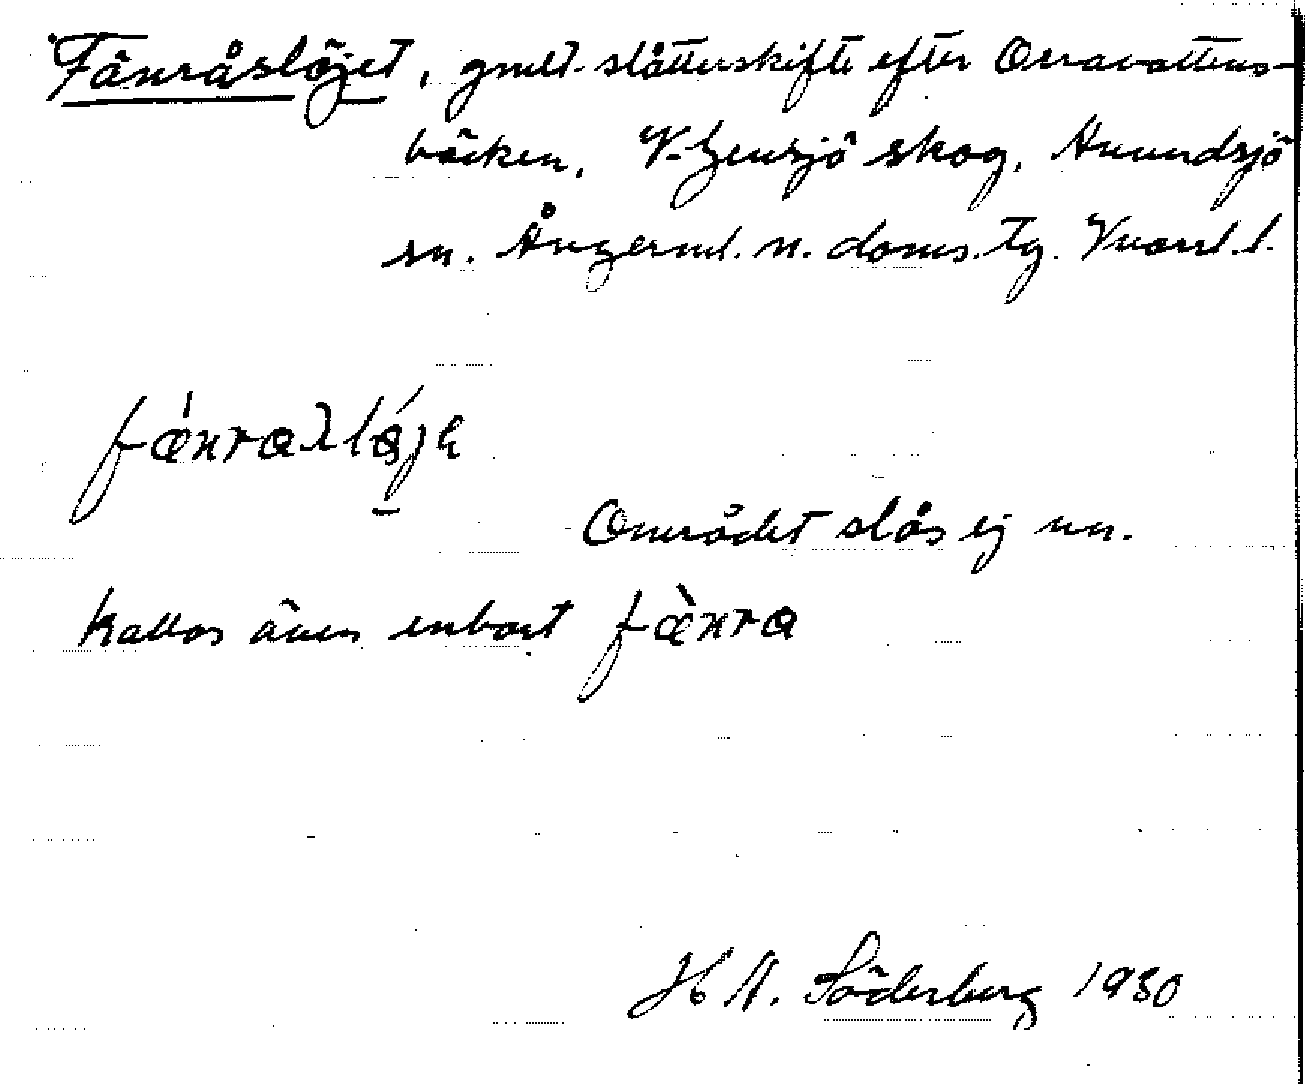 Fänråslöjet, gmlt slåtterskifte efter Orravattens-
bäcken, V. Gensjö skog, Anundsjö
sn. Ångerml. n. doms. tg. Vnorrl. l.
Området slås ej nu.
Kallas även enbart fæ̀nra
H A. Söderberg 1930